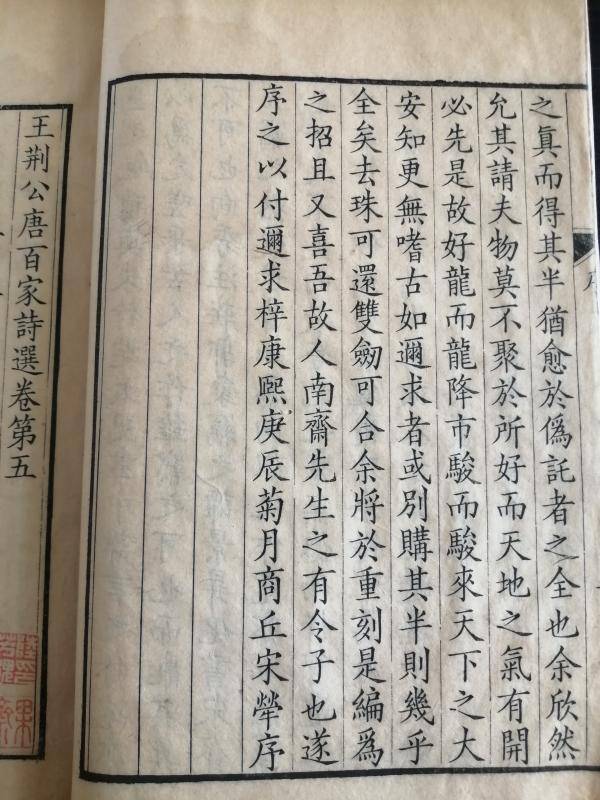 之真而得其半猶愈於僞託者之全也余欣然
允其請夫物莫不聚於所好而天地之氣有開
必先是故好龍而龍降市駿而駿來天下之大
安知更無嗜古如邇求者或別購其半則幾乎
全矣去珠可還雙劒可合余將於重刻是編爲
之招且又喜吾故人南齋先生之有令子也遂
序之以付邇求梓康熙庚辰菊月商丘宋犖序
王荆公唐百家詩選卷第五